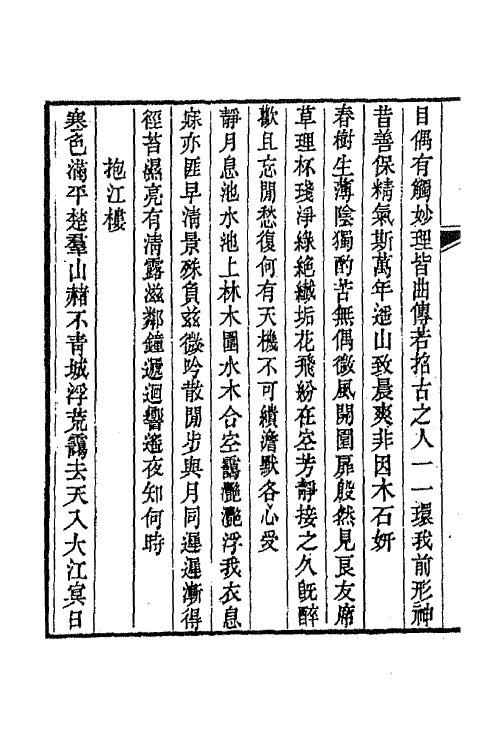 目偶有觸妙理皆曲傳若招古之人一一環我前形神
昔善保精氣斯萬年遥山致晨爽非因木石姸
春樹生薄陰獨酌苦無偶微風開園扉殷然見良友席
草理杯殘淨綠絶纎垢花飛紛在空芳靜接之久旣醉
歡且忘閒愁復何有天機不可續澹默各心受
靜月息池水池上林木圍水木合空靄灩灩浮我衣息
寐亦匪早清景殊負兹微吟散閒步與月同遲遲漸得
徑苔濕亮有清露滋鄰鐘遞迴響遙夜知何時
抱江樓
寒色滿平楚羣山赭不靑城浮荒靄去天入大江寘日